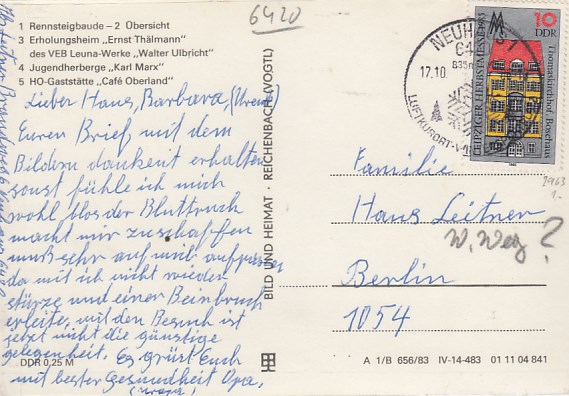 6420
1 Rennsteigbaude – 2 Übersicht
3 Erholungsheim „Ernst Thälmann"
des VEB Leuna-Werke „Walter Ulbricht"
4 Jugendherberge „Karl Marx"
5 HO-Gaststätte „Café Oberland"
Lieber Hans, Barbara,
Euren Brief mit dem
Bildern dankent erhalten
sonst fühle ich mich
wohl blos der Blutdruck
macht mir zu schaffen
muß sehr auf mich aufpassen
da mit ich nicht wieder
stürze und einer Beinbruch
erleite, mit den Besuch ist
jetzt nicht die günstige
gelegenheit. Es grüst Euch
mit bester Gesundheit Opa,
DDR 0,25 M
BILD UND HEIMAT · REICHENBACH (VOGTL)
17.10
835m
LUFTKURORT
10
DDR
LEIPZIGER HERBSTMESSE 1985
Thomaskirchhof, Bosehaus
Familie
Hans Leitner
W. Weg ?
Berlin
1054
A 1/B 656/83 IV-14-483 01 11 04 841